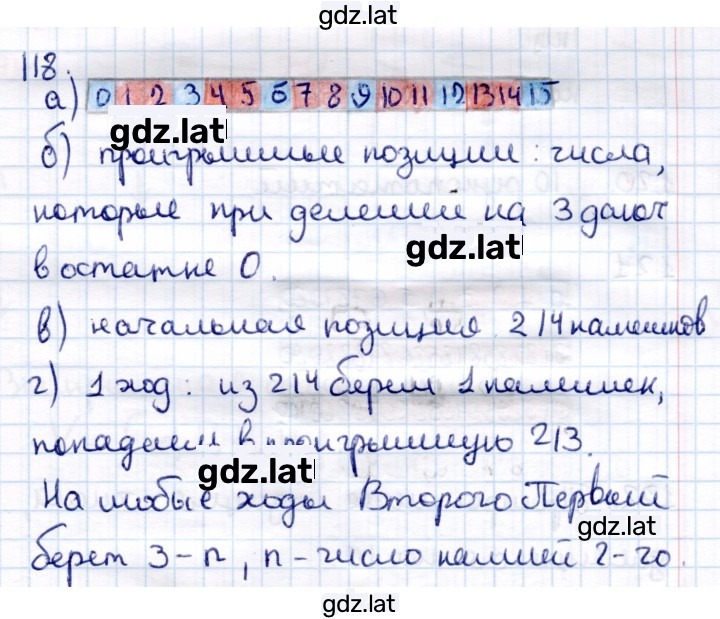 gdz.lat
118.
а) 0 1 2 3 4 5 6 7 8 9 10 11 12 13 14 15
gdz.lat
б) проигрышные позиции: числа,
которые при делении на 3 дают
gdz.lat
в остатке 0.
в) начальная позиция 214 камешков
г) 1 ход: из 214 берем 1 камешек,
попадаем в проигрышную 213.
gdz.lat
На любые ходы Второго Первый
gdz.lat
берет 3-n, n-число камней 2-го.
gdz.lat